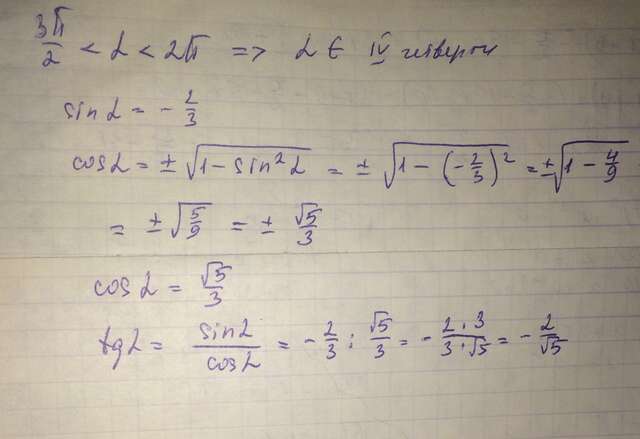 3π/2 < α < 2π => α ∈ IV четверти
sin α = - 2/3
cos α = ± √(1 - sin² α) = ± √(1 - (-2/3)²) = ± √(1 - 4/9)
= ± √(5/9) = ± √5/3
cos α = √5/3
tg α = sin α / cos α = - 2/3 : √5/3 = - 2·3 / 3·√5 = - 2/√5